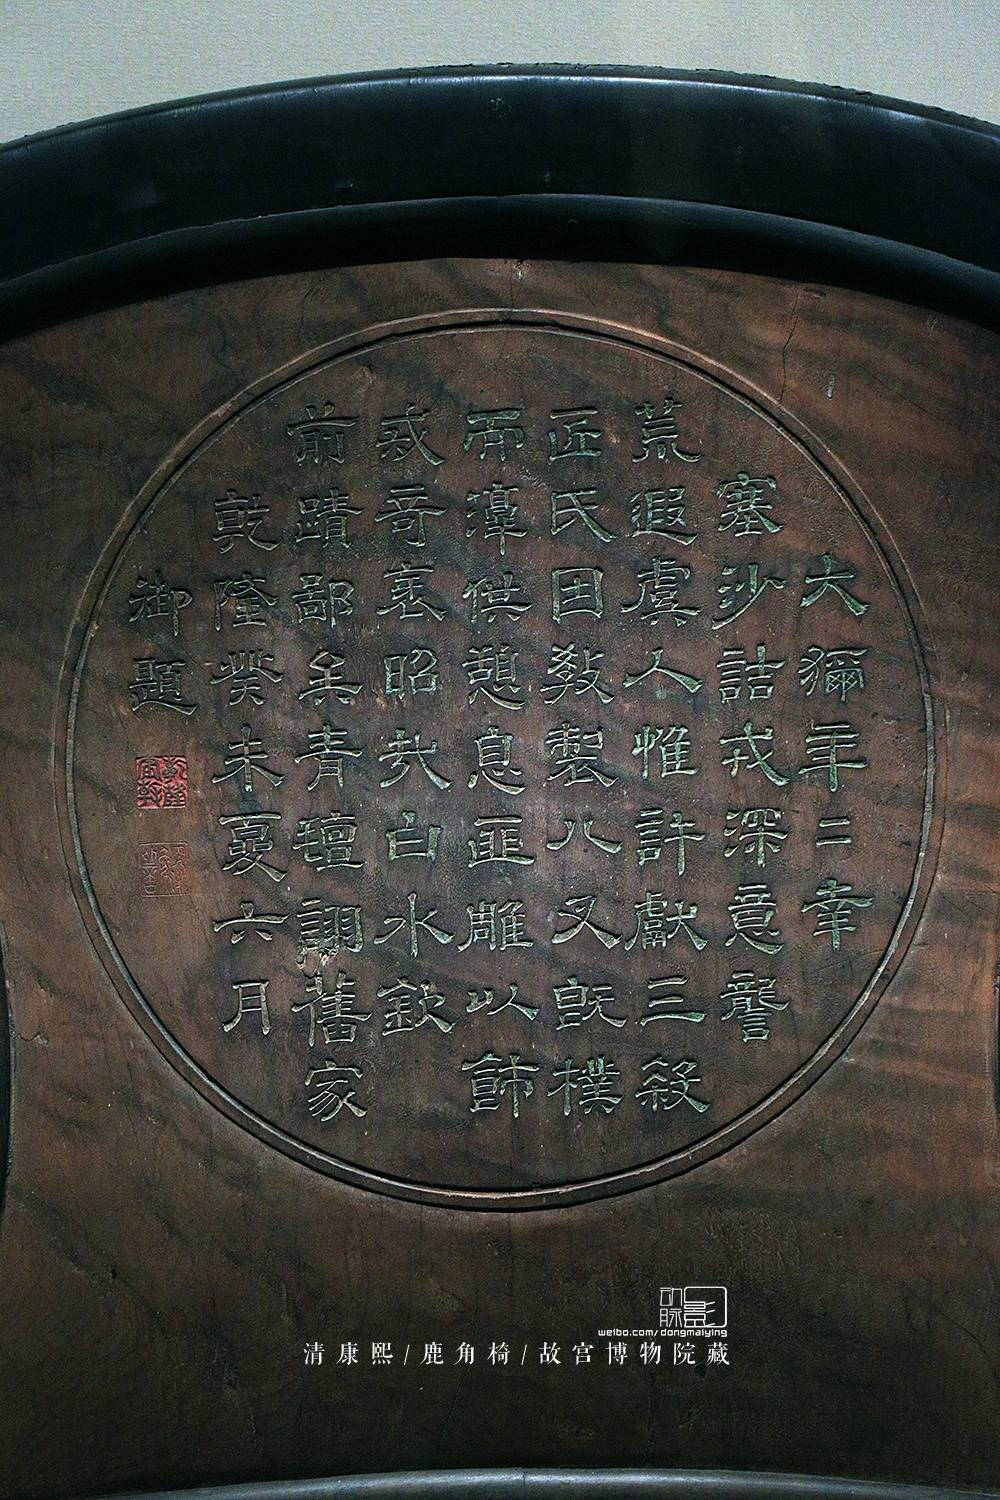 大獮年二幸
塞沙詰戎深意讋
荒遐虞人惟許獻三殺
匠氏因教製八叉旣樸
而淳供憩息匪雕以飾
戒奇衺昭哉白水欽
前蹟鄙矣青氊詡舊家
乾隆癸未夏六月
御題
乾隆宸翰
动脉影
weibo.com/dongmaiying
清康熙/鹿角椅/故宫博物院藏